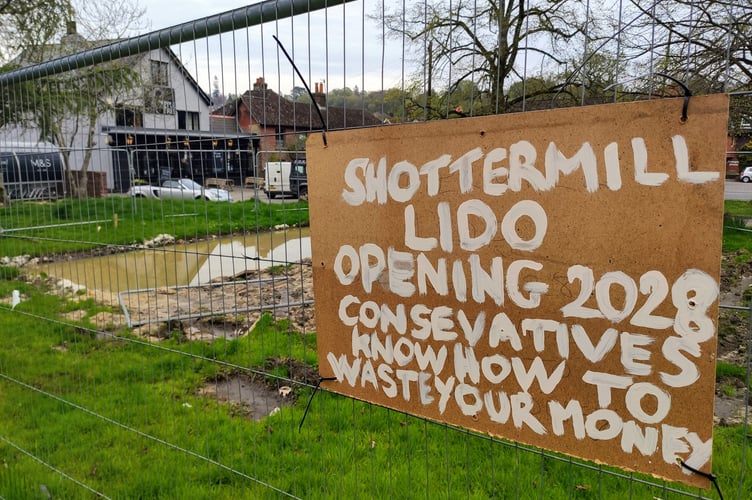 M&S
SHOTTERMILL
LIDO
OPENING 2028
CONSEVATIVES
KNOW HOW TO
WASTE YOUR MONEY